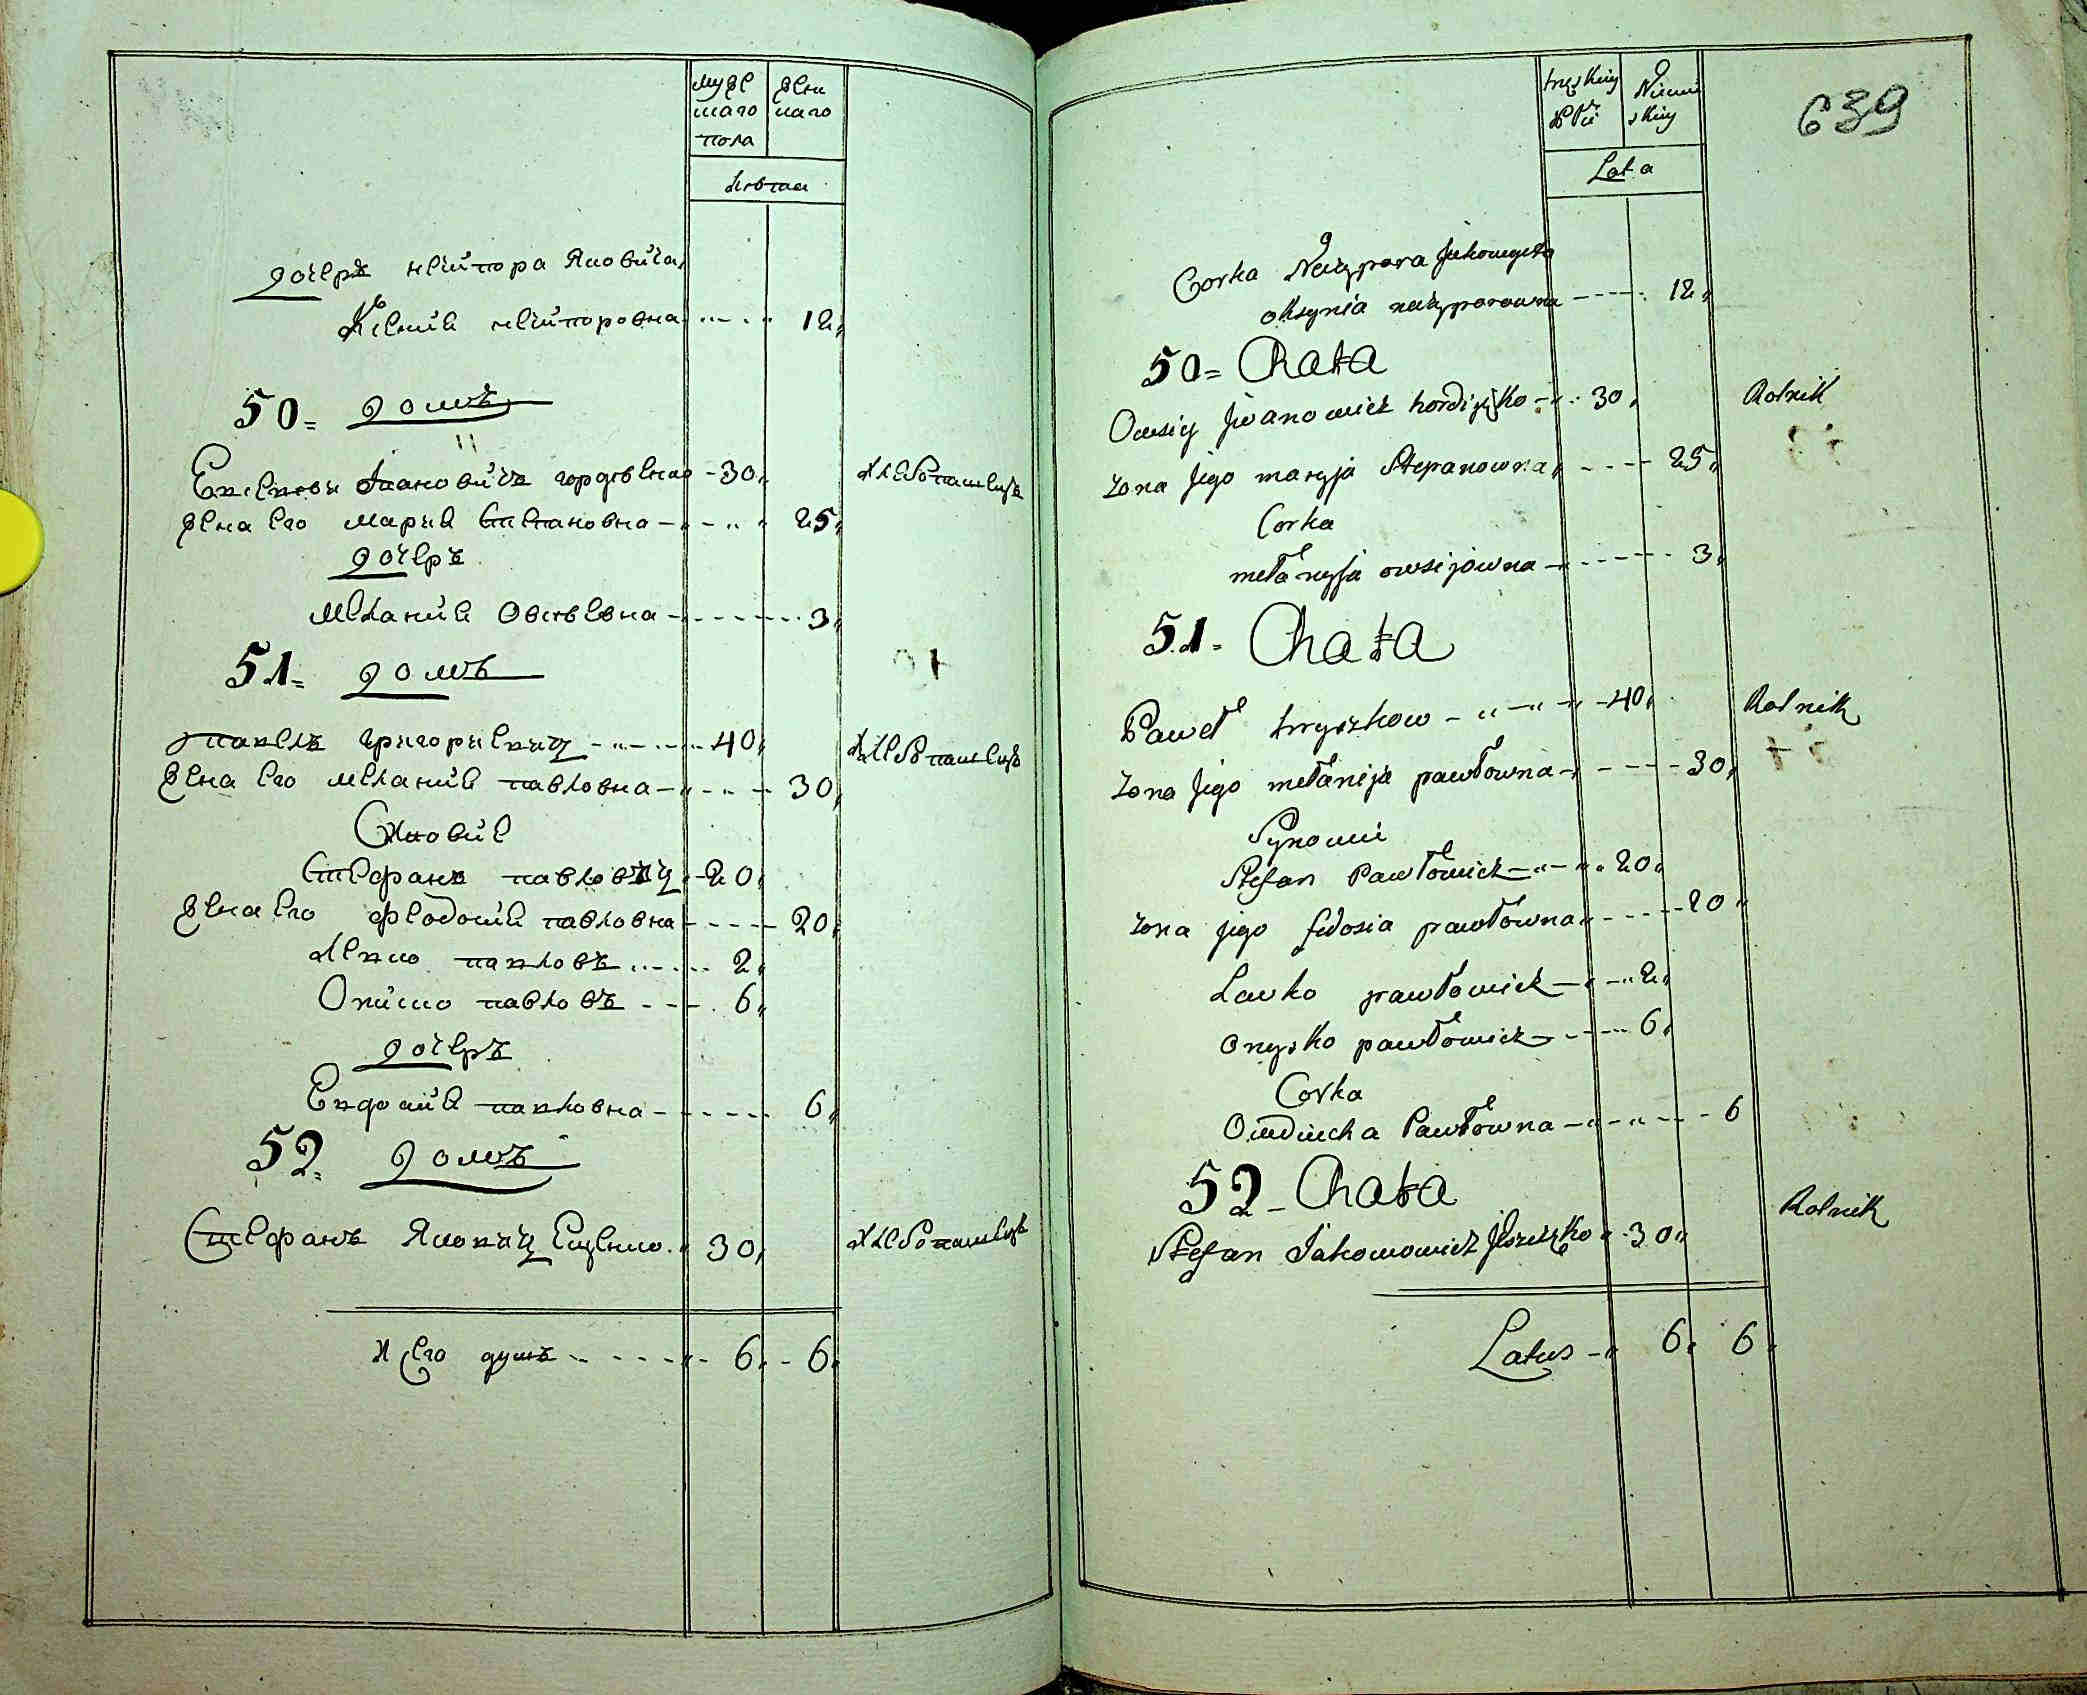 муже
скаго
пола
жен
скаго
Лѣта
дочеръ Нечипора Яковича
Ксения нечипоровна 12
50 = домъ
Евсѣевъ Ивановичъ гордѣенко 30 хлебопашецъ
жена его мария степановна 25
дочеръ
Мелания Овсѣевна 3
51 = домъ
павелъ григориевичъ 40 хлебопашецъ
жена его мелания павловна 30
Сыновие
Стефанъ павловичъ 20
жена его феодосия павловна 20
Левко павловъ 2
Ониско павловъ 6
дочеръ
Евдокия павловна 6
52 = домъ
Стефанъ Яковичъ 30 хлебопашецъ
душъ 6 6
639
męskiey
Płci
Niewi
skiey
Lata
Corka Neczypora Jakowycza
oksynia neczyporowna 12
50 = Chata
Owsiy Jwanowicz hordijęko 30 Rolnik
zona Jego maryja Stepanowna 25
Corka
mełanyja owsijowna 3
51 = Chata
Paweł hryszkow 40 Rolnik
zona Jego mełanija pawłowna 30
Synowie
Stefan Pawłowicz 20
zona jego fedosia pawłowna 20
Lewko pawłowicz 2
onysko pawłowicz 6
Corka
Owdiucha Pawłowna 6
52 - Chata
Stefan Jakowowicz 30 Rolnik
Latus 6 6